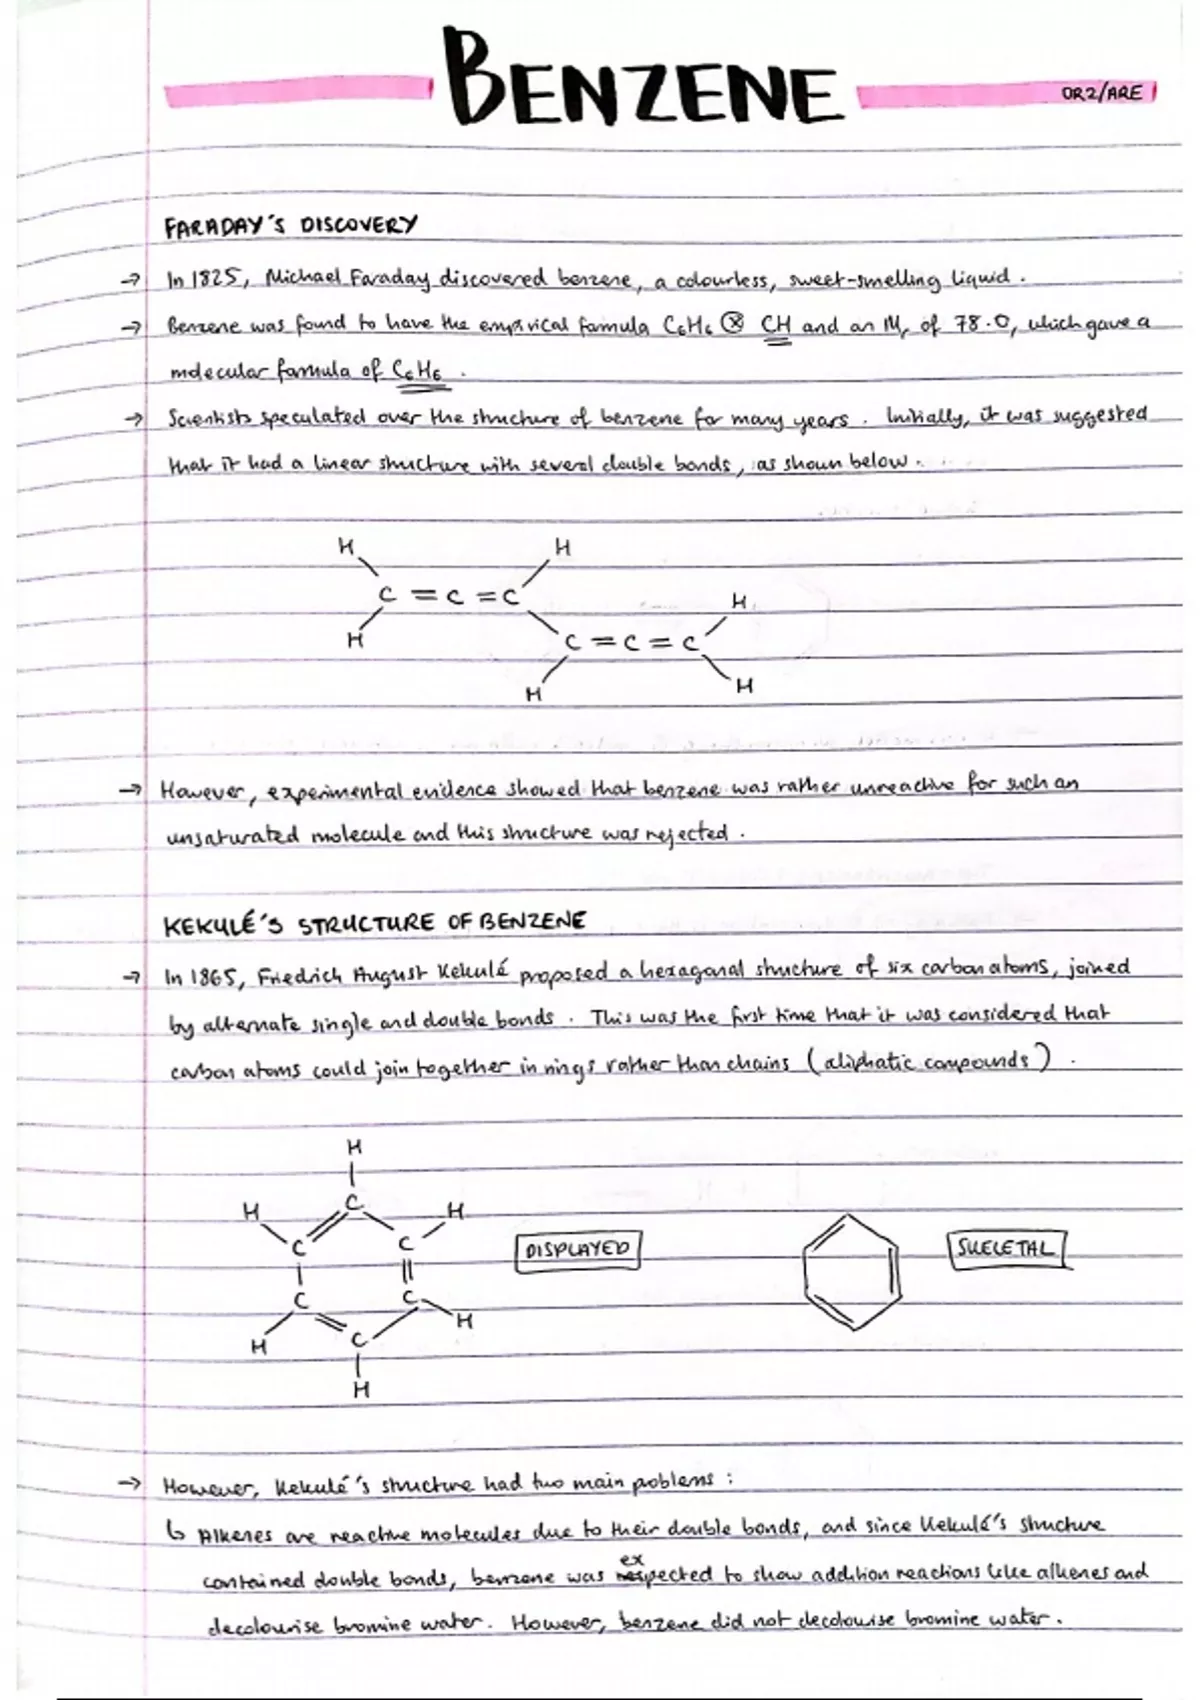 BENZENE
OR2/ARE
FARADAY'S DISCOVERY
→ In 1825, Michael Faraday discovered benzene, a colourless, sweet-smelling liquid.
→ Benzene was found to have the empirical formula C6H6 ⊗ CH and an Mr of 78.0, which gave a
molecular formula of C6H6.
→ Scientists speculated over the structure of benzene for many years. Initially, it was suggested
that it had a linear structure with several double bonds, as shown below.
H H
C = C = C H
H C = C = C
H H
→ However, experimental evidence showed that benzene was rather unreactive for such an
unsaturated molecule and this structure was rejected.
KEKULÉ'S STRUCTURE OF BENZENE
→ In 1865, Friedrich August Kekulé proposed a hexagonal structure of six carbon atoms, joined
by alternate single and double bonds. This was the first time that it was considered that
carbon atoms could join together in rings rather than chains (aliphatic compounds).
H
H C H
C C DISPLAYED SKELETAL
C C
H C H
H
→ However, Kekulé's structure had two main poblems:
↳ Alkenes are reactive molecules due to their double bonds, and since Kekulé's structure
contained double bonds, benzene was expected to show addition reactions like alkenes and
decolourise bromine water. However, benzene did not decolourise bromine water.